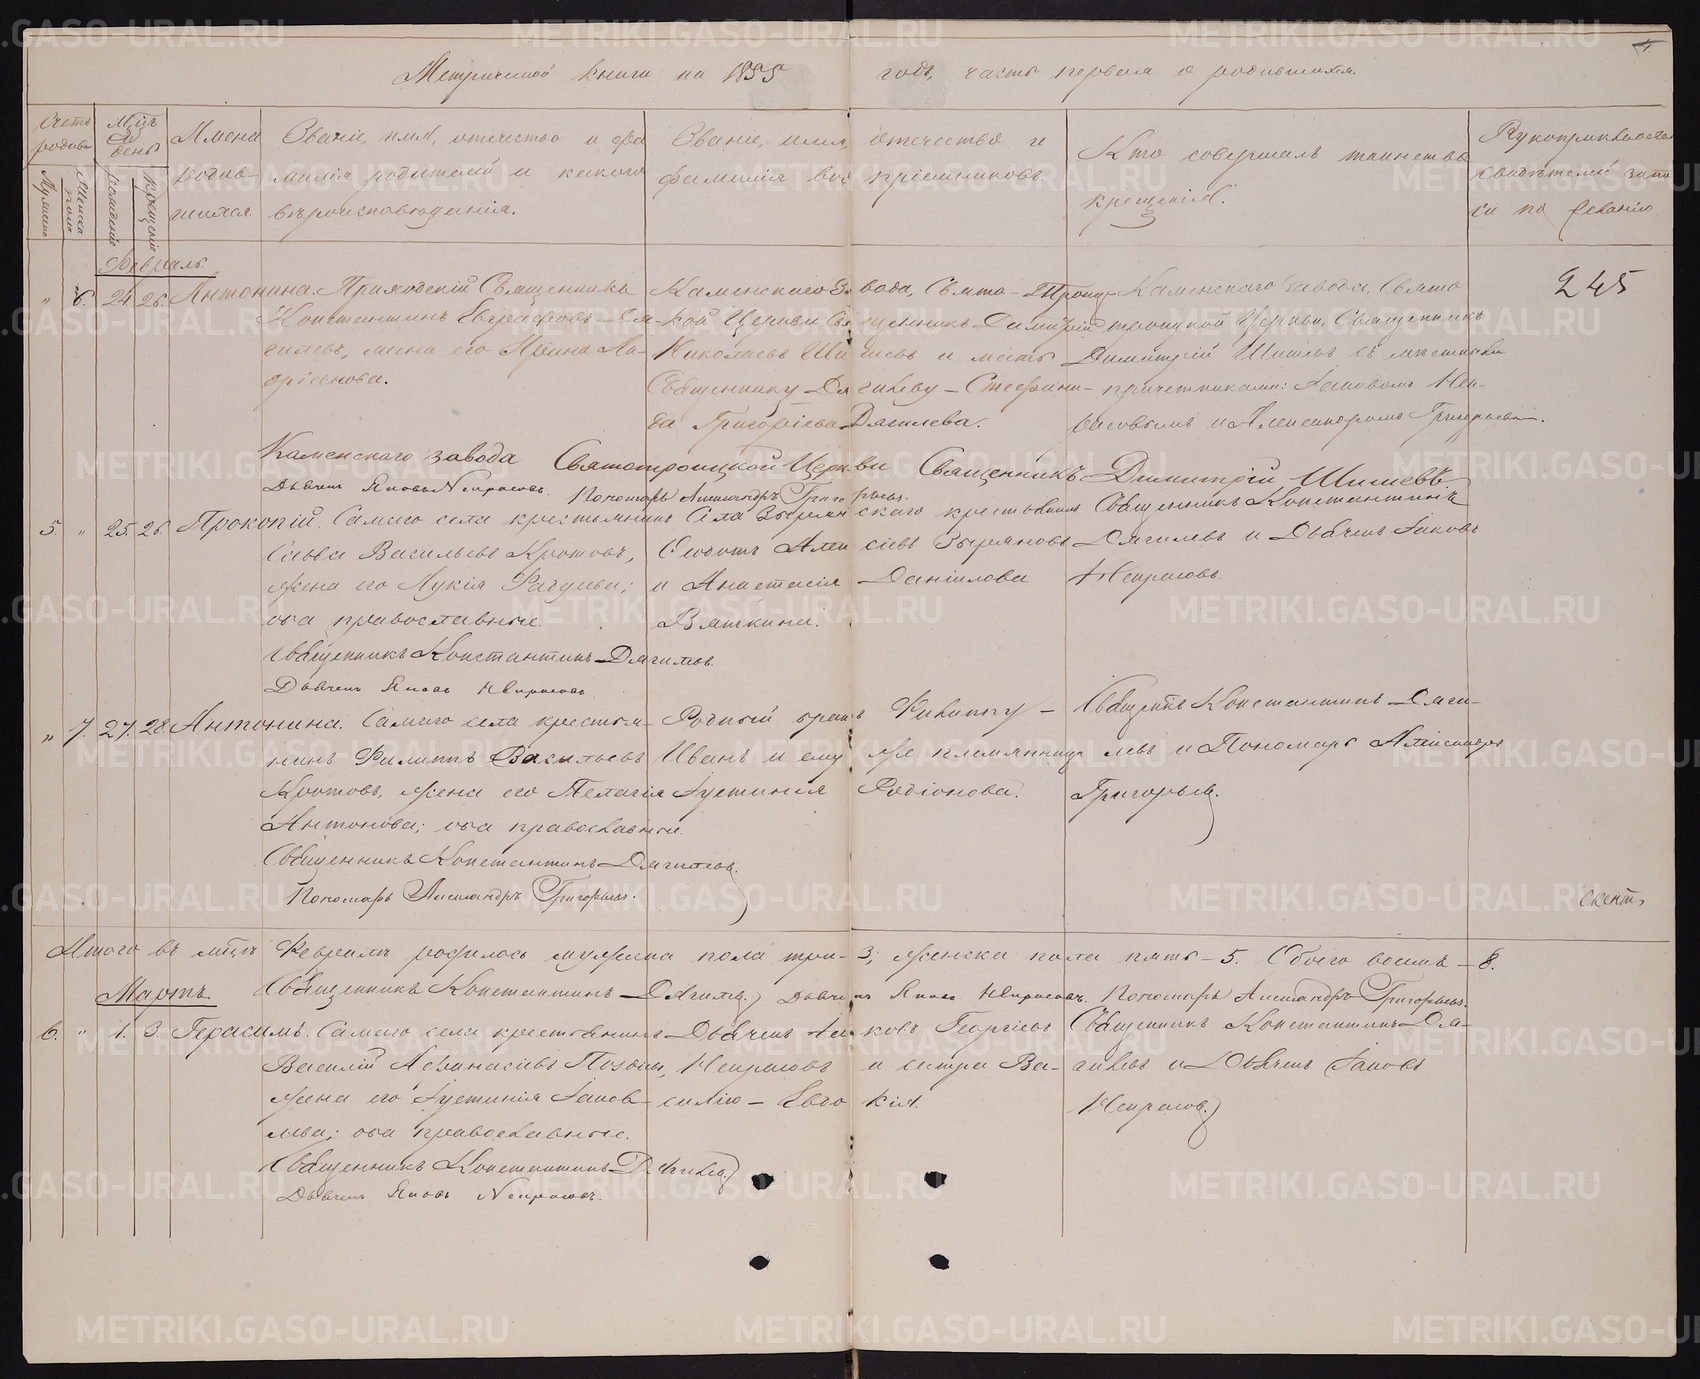 Метрической книги на 1855 годъ, часть первая о родившихся.
4.
Счетъ родив-
Мужеска
Женска пола
Мѣсяцъ и день
рожденія
крещенія
Имена родив-шихся
Званіе, имя, отчество и фа
милія родителей и какого
вѣроисповѣданія.
Званіе, имя, отчество и
фамилія вос пріемниковъ.
Кто совершалъ таинство
крещенія.
Рукоприкладство
свидѣтелей запи
си по желанію
Февраль.
" 6. 24. 26. Антонина.
Приходскій Священникъ
Константинъ Евграфовъ Дя-
гилевъ, жена его Ирина Ла-
ріонова.
Каменскаго Завода, Свято-Троиц-
кой Церкви Священникъ Димитрій
Николаевъ Шишевъ и мать
Священнику Дягилеву - Стефани-
да Григорьева Дягилева.
Каменскаго Завода, Свято
троицкой Церкви, Священникъ
Димитрій Шишевъ съ мѣстными
причетниками: Іаковомъ Нек-
расовымъ и Александромъ Григорьевымъ.
245
Каменскаго завода Святотроицкой Церкви Священникъ Димитрій Шишевъ.
Дьячекъ Яковъ Некрасовъ. Пономарь Александръ Григорьевъ.
5. " 25. 26. Прокопій.
Самаго села крестьянинъ
Савва Васильевъ Кротовъ,
жена его Лукія Фадѣева;
оба православные.
Села Зырянскаго крестьянинъ
Ѳедотъ Алексѣевъ Зыряновъ
и Анастасія Даніилова
Вяткина.
Священникъ Константинъ
Дягилевъ и Дьячекъ Іаковъ
Некрасовъ.
Священникъ Константинъ Дягилевъ.
Дьячекъ Яковъ Некрасовъ.
" 7. 27. 28. Антонина.
Самаго села крестьян-
нинъ Филиппъ Васильевъ
Кротовъ, жена его Пелагія
Антонова; оба православные.
Родный братъ Филиппу -
Иванъ и ему же племянница
Іустинія Родіонова.
Священникъ Константинъ Дяги-
левъ и Пономарь Александръ
Григорьевъ.
Священникъ Константинъ Дягилевъ.
Пономарь Александръ Григорьевъ.
Итого въ мѣсяцѣ Февралѣ родилось мужеска пола три - 3; женска пола пять - 5. Обоего восемь - 8.
Священникъ Константинъ Дягилевъ. Дьячекъ Яковъ Некрасовъ. Пономарь Александръ Григорьевъ.
Мартъ.
6. " 1. 3. Герасимъ.
Самаго села крестьянинъ
Василій Аѳанасіевъ
жена его Іустинія Іаков-
лева; оба православные.
Дьячекъ Іаковъ Георгіевъ
Некрасовъ и сестра Ва-
силію - Евдокія.
Священникъ Константинъ Дя-
гилевъ и Дьячекъ Іаковъ
Некрасовъ.
Священникъ Константинъ Дягилевъ.
Дьячекъ Яковъ Некрасовъ.
METRIKI.GASO-URAL.RU